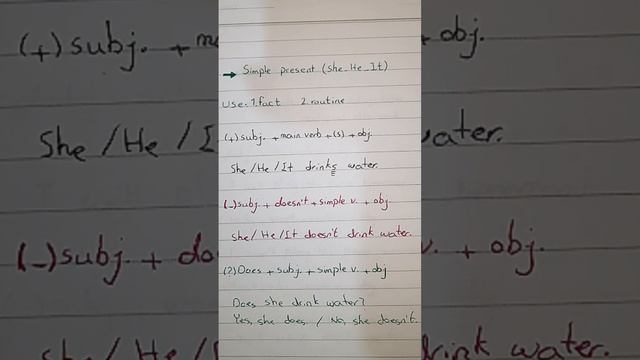 → Simple present (she_He_It)
Use: 1.fact 2.routine
(+) subj. + main verb + (s) + obj.
She / He / It drinks water.
(-) subj. + doesn't + simple v. + obj.
She / He / It doesn't drink water.
(2) Does + subj. + simple v. + obj
Does she drink water?
Yes, she does / No, she doesn't.